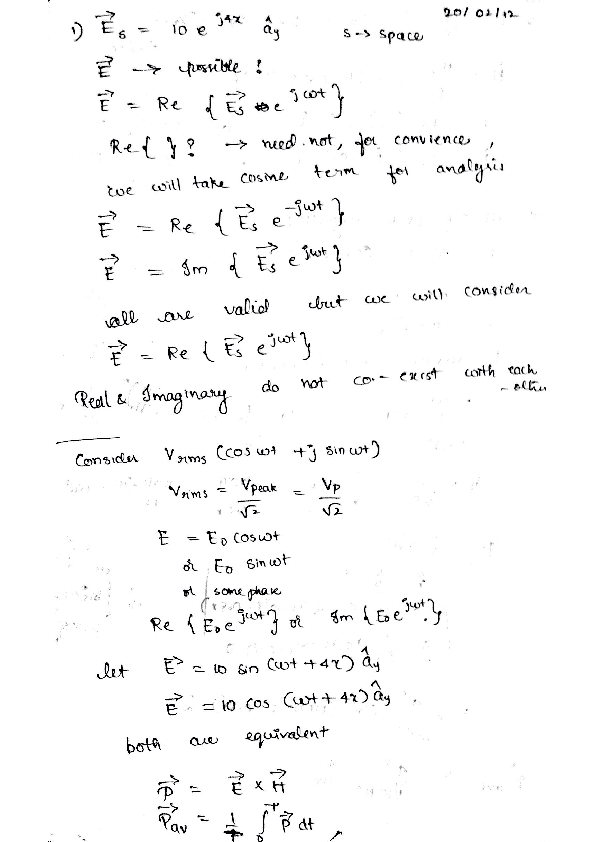 20/02/12
1) E⃗s = 10 e^{j4x} â_y   s → space
E⃗ → possible !
E⃗ = Re { E⃗s e^{jωt} }
Re{ } ? → need not, for convience,
we will take cosine term for analysis
E⃗ = Re { E⃗s e^{-jωt} }
E⃗ = Im { E⃗s e^{jωt} }
all are valid but we will consider
E⃗ = Re { E⃗s e^{jωt} }
Real & Imaginary do not co-exist with each
-other
Consider Vrms (cos ωt + j sin ωt)
Vrms = Vpeak/√2 = Vp/√2
E = E0 cos ωt
or E0 sin ωt
or some phase
Re { E0 e^{jωt} } or Im { E0 e^{jωt} }
let E⃗ = 10 sin (ωt + 4x) â_y
E⃗ = 10 cos (ωt + 4x) â_y
both are equivalent
P⃗ = E⃗ × H⃗
P⃗av = 1/T ∫_0^T P⃗ dt